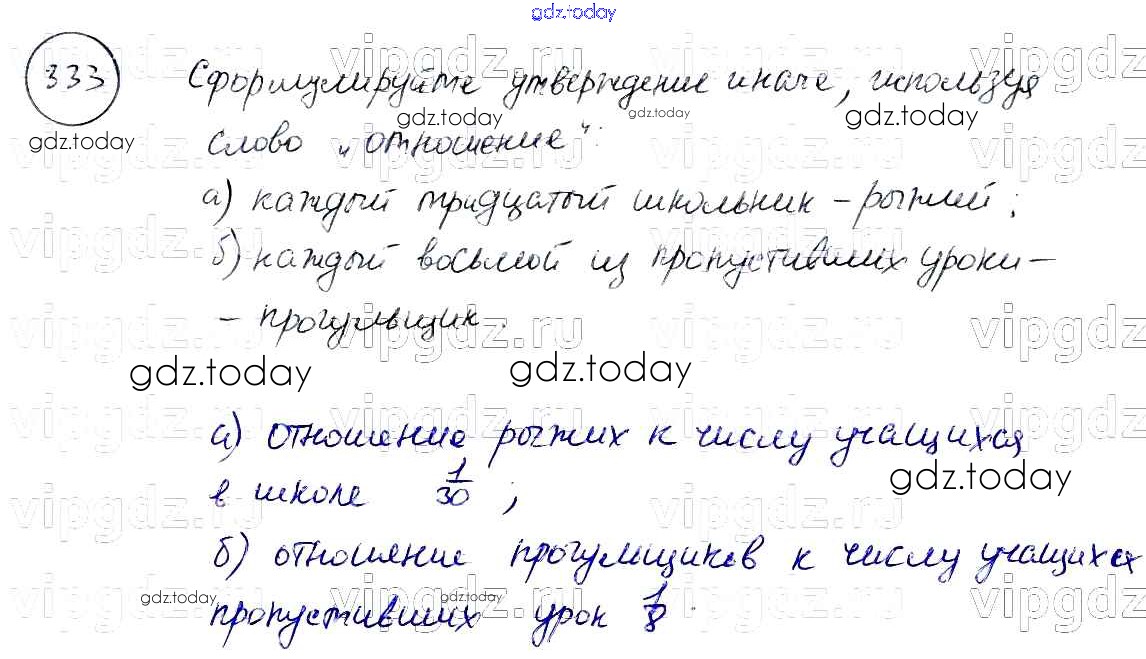 gdz.today
333 Сформулируйте утверждение иначе, используя
gdz.today gdz.today gdz.today
слово „отношение“:
а) каждый тридцатый школьник – рыжий;
б) каждый восьмой из пропустивших уроки –
– прогульщик.
gdz.today gdz.today
а) отношение рыжих к числу учащихся
gdz.today
в школе 1/30 ;
б) отношение прогульщиков к числу учащихся
gdz.today gdz.today
пропустивших урок 1/8
vipgdz.ru